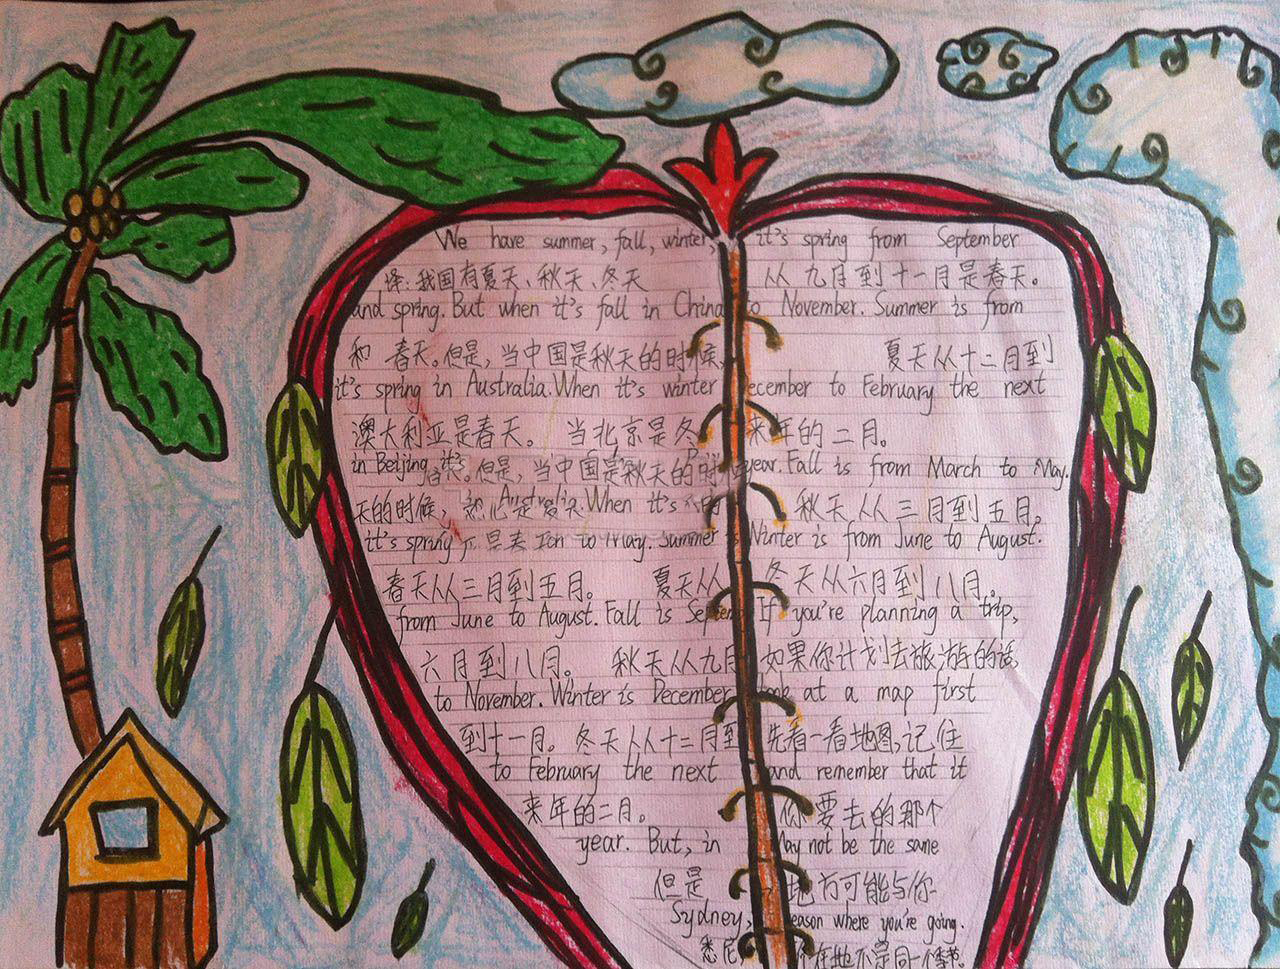 We have summer, fall, winter,
译:我国有夏天、秋天、冬天
and spring. But when it's fall in China
和 春天。但是,当中国是秋天的时候,
it's spring in Australia. When it's winter
澳大利亚是春天。 当北京是冬
in Beijing, it's
但是,当中国是秋天的时
天的时候, in Australia. When it's
it's spring to May. Summer is
春天从三月到五月。 夏天从
from June to August. Fall is
六月到八月。 秋天从九月
to November. Winter is December
到十一月。冬天从十二月到
to February the next
来年的二月。
year. But, in
但是
Sydney,
悉尼,
it's spring from September
从九月到十一月是春天。
to November. Summer is from
夏天从十二月到
December to February the next
来年的二月。
year. Fall is from March to May.
秋天从三月到五月。
Winter is from June to August.
冬天从六月到八月。
If you're planning a trip,
如果你计划去旅游的话,
look at a map first
先看一看地图,记住
and remember that it
你要去的那个
may not be the same
地方可能与你
season where you're going.
在地不是同一个季节。